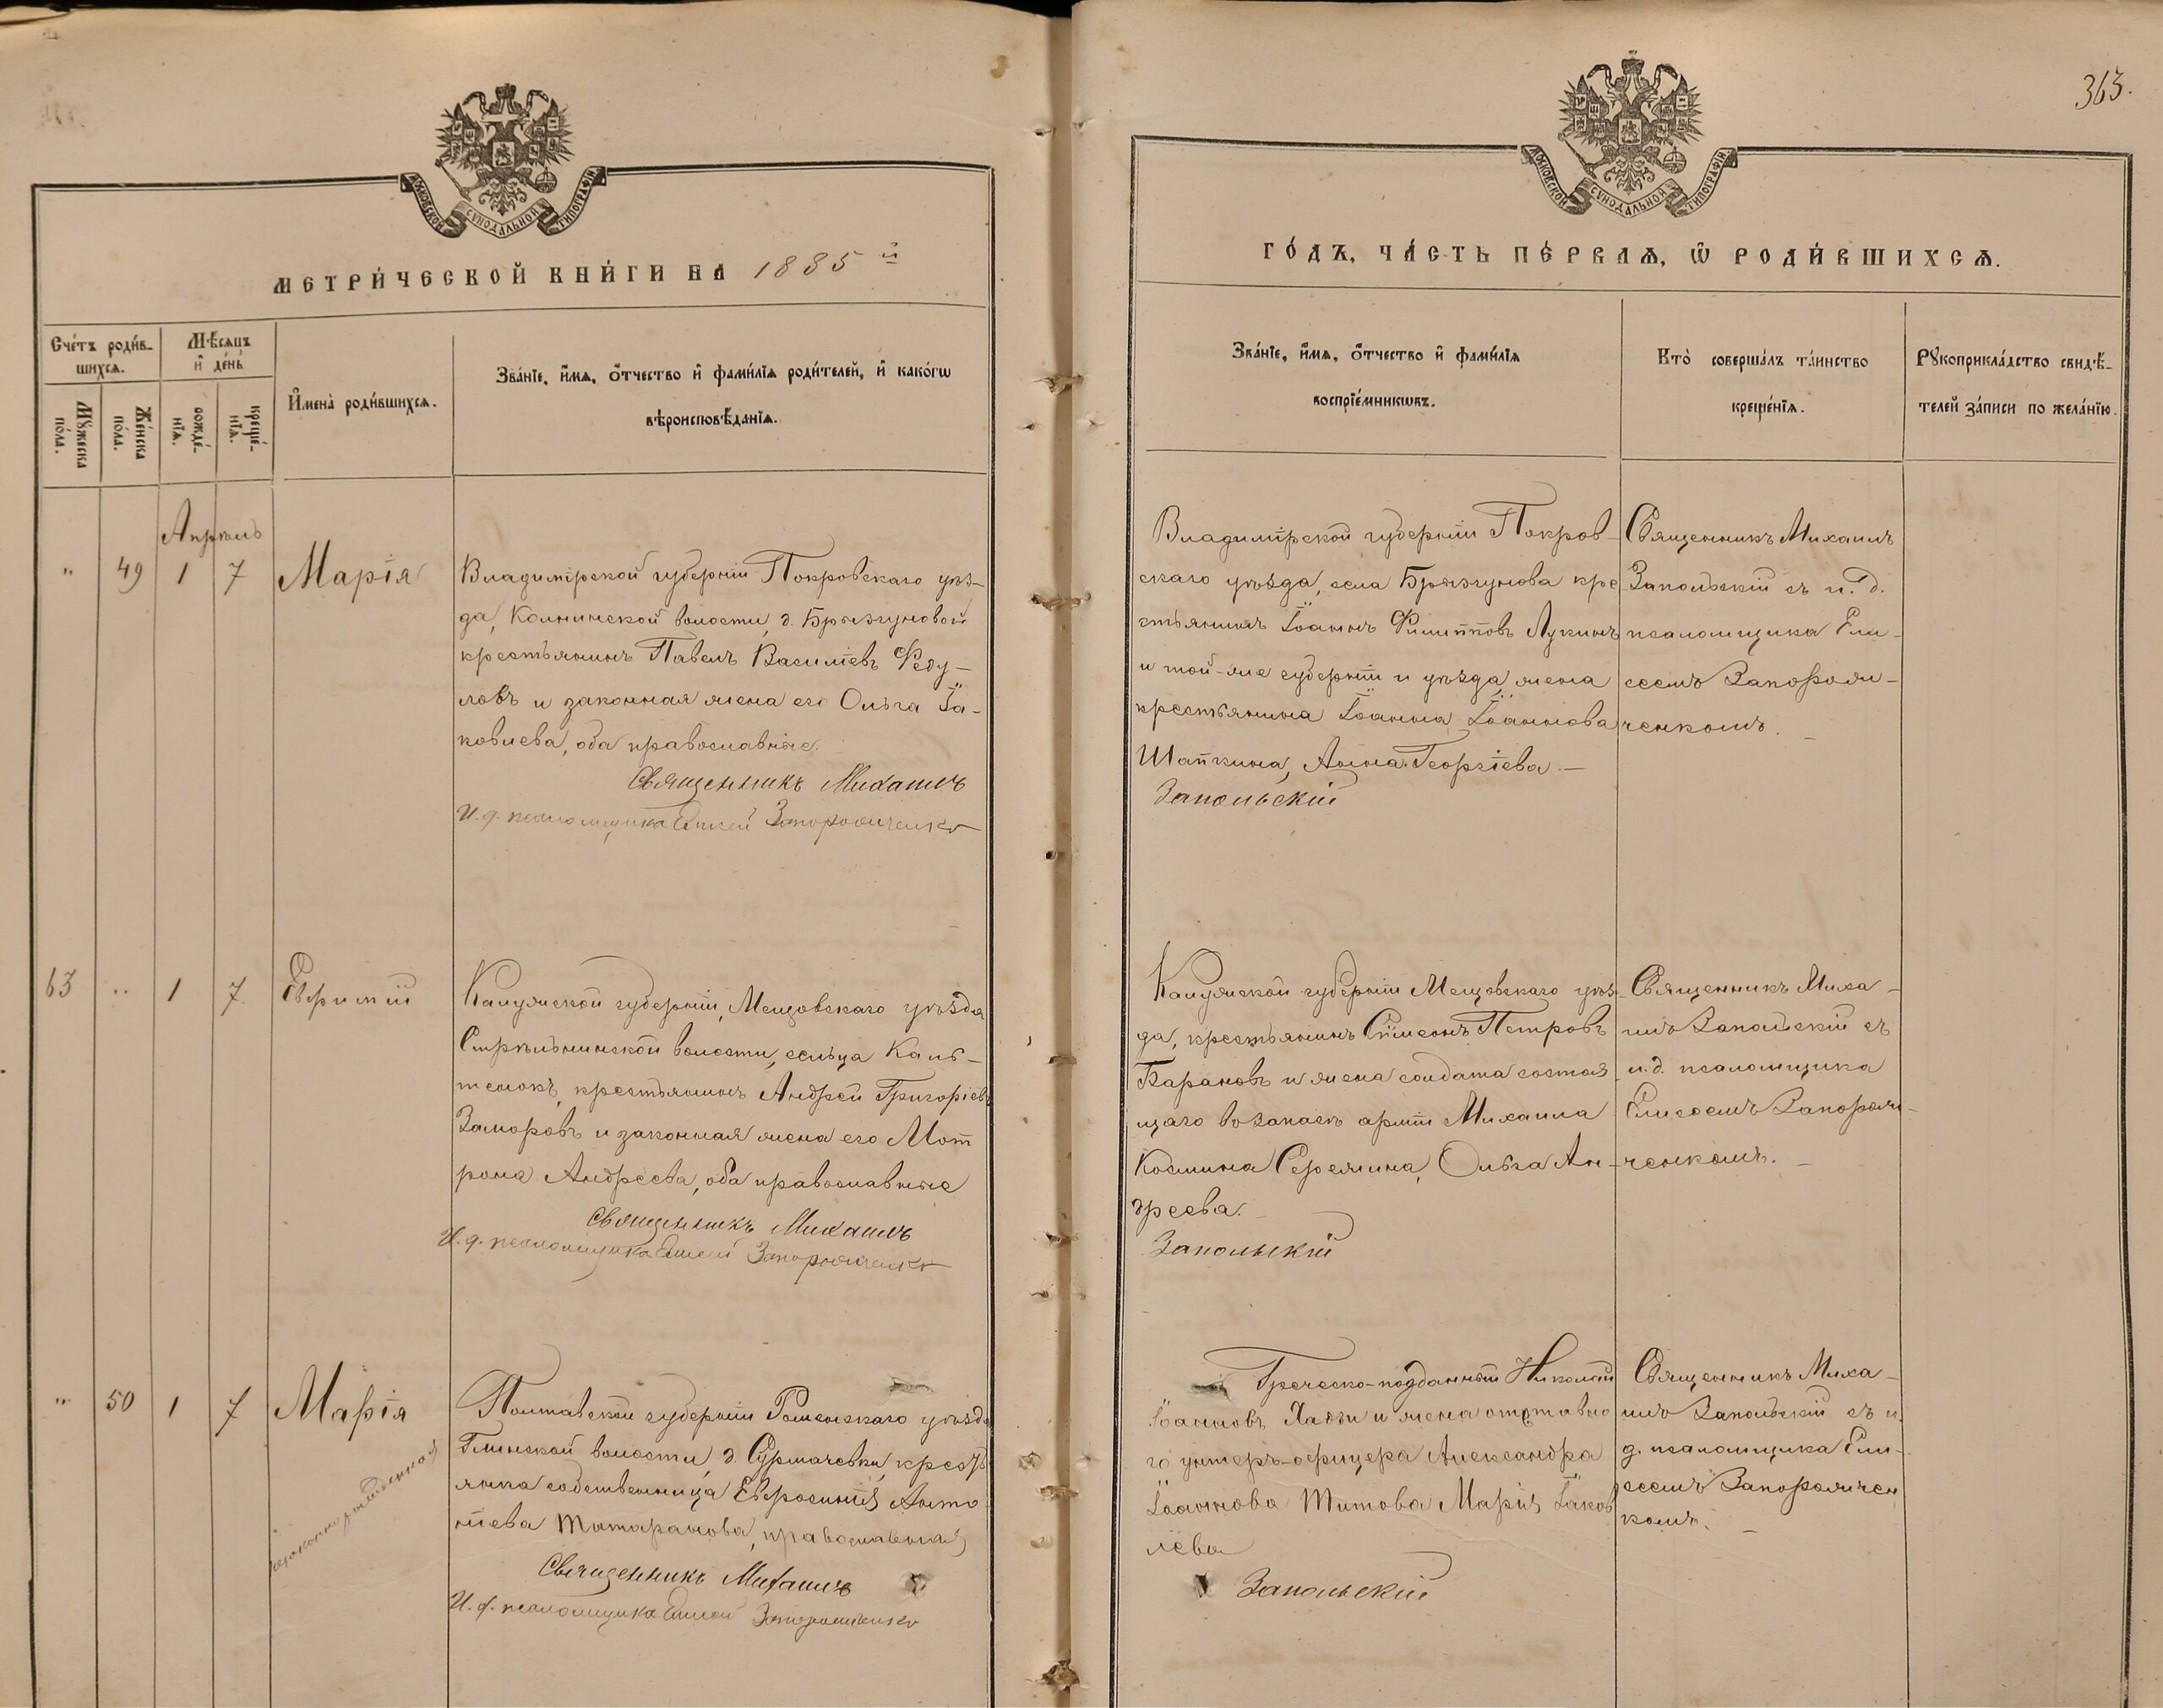 363.
МОСКОВСКОЙ СѴНОДАЛЬНОЙ ТИПОГРАФІИ
МОСКОВСКОЙ СѴНОДАЛЬНОЙ ТИПОГРАФІИ.
МЕТРИ́ЧЕСКОЙ КНИ́ГИ НА 1885 й
ГО́ДЪ, ЧА́СТЬ ПЕ́РВАѦ, Ѡ҆ РОДИ́ВШИХСѦ.
Сче́тъ роди́в-
шихсѧ.
Мꙋ́жеска по́ла.
Же́нска по́ла.
Мѣ́сѧцъ и҆ де́нь
рожде́-
нїѧ.
креще́-
нїѧ.
И҆мена̀ роди́вшихсѧ.
Зва́нїе, и҆́мѧ, ѻ҆́тчество и҆ фами́лїѧ роди́телей, и҆ како́гѡ
вѣроисповѣ́данїѧ.
Зва́нїе, и҆́мѧ, ѻ҆́тчество и҆ фами́лїѧ
воспрїе́мникѡвъ.
Кто̀ соверша́лъ та́инство
креще́нїѧ.
Рꙋкоприкла́дство свидѣ́-
телей за́писи по жела́нїю.
Апрѣль
" 49 1 7 Марія
Владимірской губерніи Покровскаго уѣз-
да, Копнинской волости, д. Брызгуновой
крестьянинъ Павелъ Василіевъ Феду-
ловъ и законная жена его Ольга Іа-
ковлева, оба православные.
Священникъ Михаилъ
И. д. псаломщика Елисей Запорожченко
Владимірской губерніи Покров-
скаго уѣзда, села Брызгунова кре
стьянинъ Іоаннъ Филипповъ Лукинъ
и той-же губерніи и уѣзда, жена
крестьянина Іоанна Іоаннова
Шапкина, Анна Георгіева.—
Запольскій
Священникъ Михаилъ
Запольскій съ и. д.
псаломщика Ели-
сеемъ Запорож-
ченкомъ.
63 " 1 7 Евѳимій
Калужской губерніи, Мещовскаго уѣзда
волости, сельца
крестьянинъ Андрей Григорієвъ
Заморовъ и законная жена его Мот
рона Андреева, оба православные
Священникъ Михаилъ
И. д. псаломщика Елисей Запорожченко
Калужской губерніи Мещовскаго уѣз-
да, крестьянинъ Сѵмеонъ Петровъ
Барановъ и жена солдата состоя
щаго въ запасѣ арміи Михаила
Космина Серегина, Ольга Ан-
дреева.
Запольскій
Священникъ Миха-
илъ Запольскій съ
и. д. псаломщика
Елисеемъ Запорож-
ченкомъ.
" 50 1 7 Марія
незаконнорожденная
Полтавской губерніи Роменскаго уѣзда
Глинской волости, д. Сурмачевки, крест
янка собственница Евфросинія Анто
нієва Татаранова, православная
Священникъ Михаилъ
И. д. псаломщика Елисей Запорожченко
Греческо-подданный Николай
Іоанновъ и жена отставно
го унтеръ-офицера Александра
Іоаннова Титова Марія Іаков
лева
Запольскій
Священникъ Миха-
илъ Запольскій съ и.
д. псаломщика Ели-
сеемъ Запорожчен
комъ.